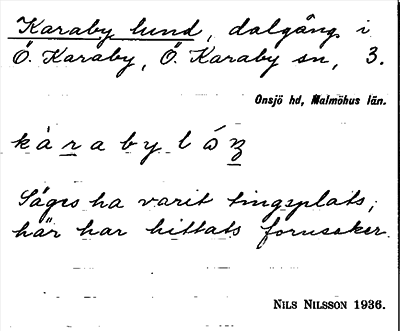 Karaby lund, dalgång i
Ö. Karaby, Ö. Karaby sn, 3.
Onsjö hd, Malmöhus län.
kàrabyl
Säges ha varit tingsplats,
här har hittats fornsaker.
NILS NILSSON 1936.